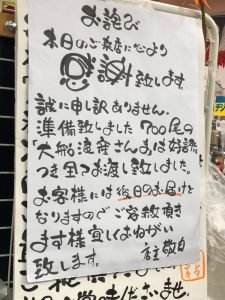 お詫び
本日のご来店に心より
感謝致します
誠に申し訳ありません。
準備致しました700尾の
「大船渡産さんま」は好評に
つき全てお渡し致しました。
お客様には後日のお届けと
なりますのでご容赦頂き
ます様宜しくおねがい
致します。 店主 敬白